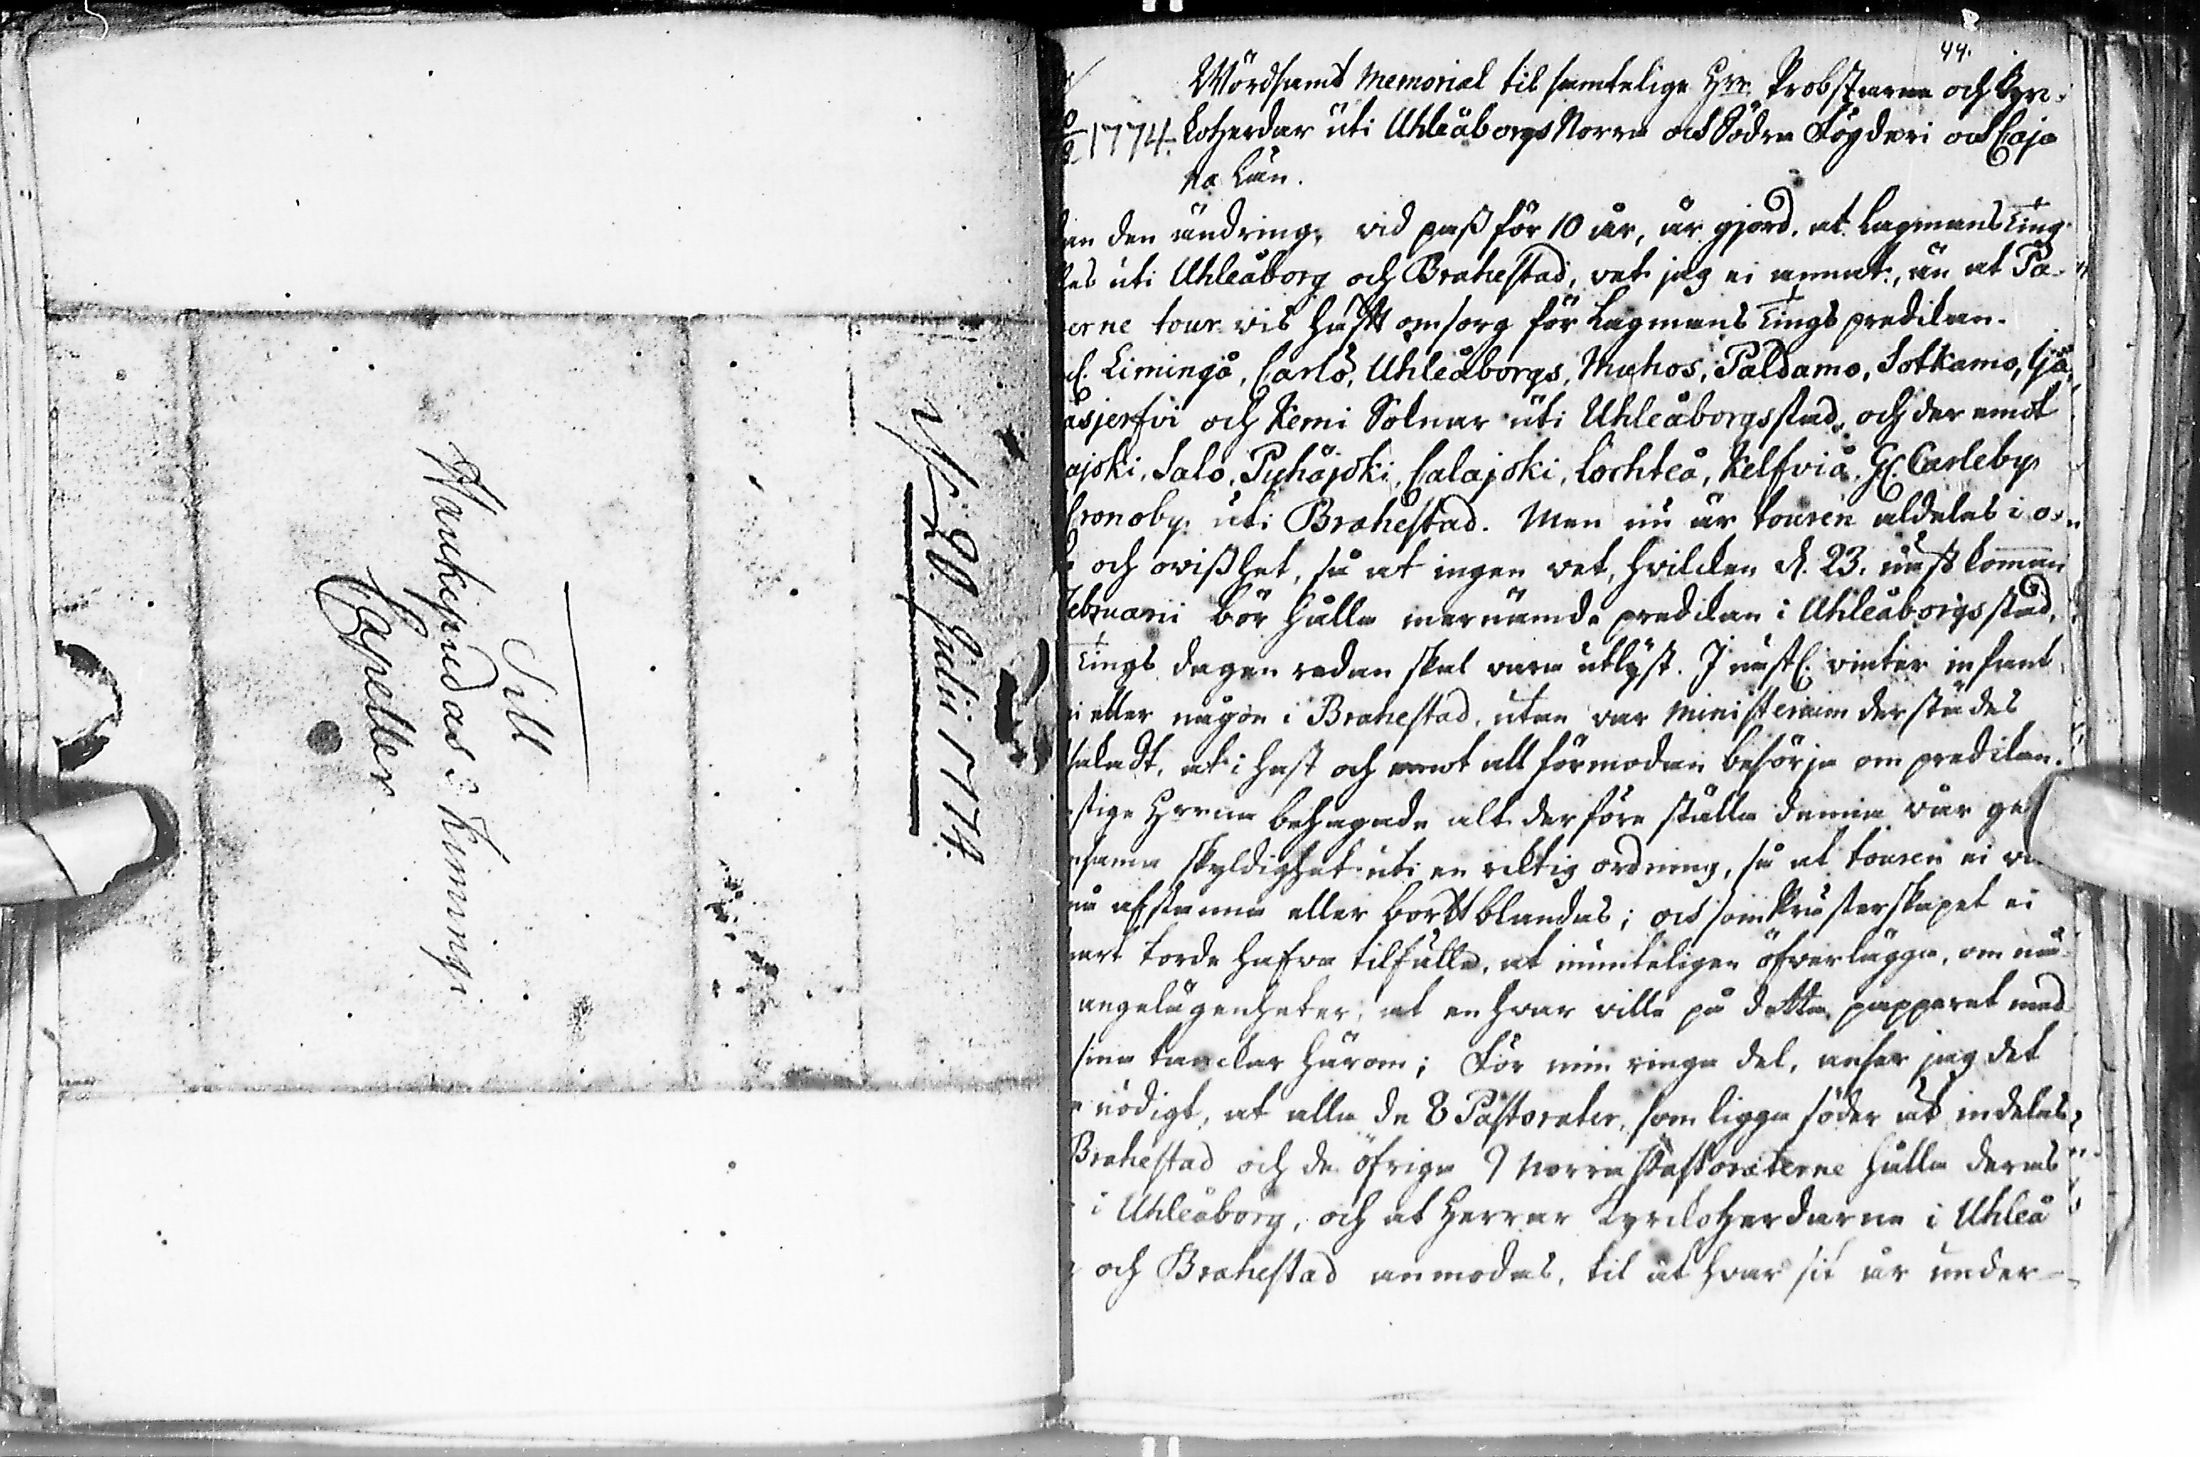 Till
Haukepudas & Kiminge
Capeller
d. 20 Julii 1774.
44.
Wördsamt Memorial til samtelige Hrr. Probstarna och Kyrc-
1774. koherdar uti Uhleåborgs Norra och Södra Fögderi och Caja
na Län.
den ändring, vid pass för 10 år, är gjord, at Lagmans Ting
les uti Uhleåborg och Brahestad, vet jag ei annat, än at Pa-
erne tour vis haft omsorg för Lagmans Tings predikan.
Limingå, Carlö, Uhleåborgs, Muhos, Paldamo, Sotkamo, Ijå,
åsjerfvi och Kemi Soknar uti Uhleåborgs stad, och der emot
ajoki, Salo, Pyhäjoki, Calajoki, Lochteå, Kelfviå, Gl. Carleby
Cronoby uti Brahestad. Men nu är touren aldeles i o-
och ovisshet, så at ingen vet, hvilcken d. 23. näst komman
Februarii bör hålla mernämde predikan i Uhleåborgs stad,
Tings dagen redan skal vara utlyst. I nästl. vinter infant
ei eller någon i Brahestad, utan var Ministerium derstädes
at i hast och emot all förmodan besörja om predikan.
stige Herrar behagade alt derföre ställa denna vår ge
samma skyldighet uti en richtig ordning, så at touren ei
må afstanna eller bortblandas; och som Prästerskapet ei
torde hafva tilfälle, at muntligen öfverlägga, om
angelägenheter, at en hvar ville på detta papperet med
sina tanckar härom; För min ringa del, anser jag det
nödigt, at alla de 8 Pastorater, som ligga söder ut indelas
Brahestad och de öfriga 9 Norra Pastoraterne hålla deras
i Uhleåborg, och at Herrar Kyrckoherdarna i Uhleå
och Brahestad anmodas, til at hvar sit år under-